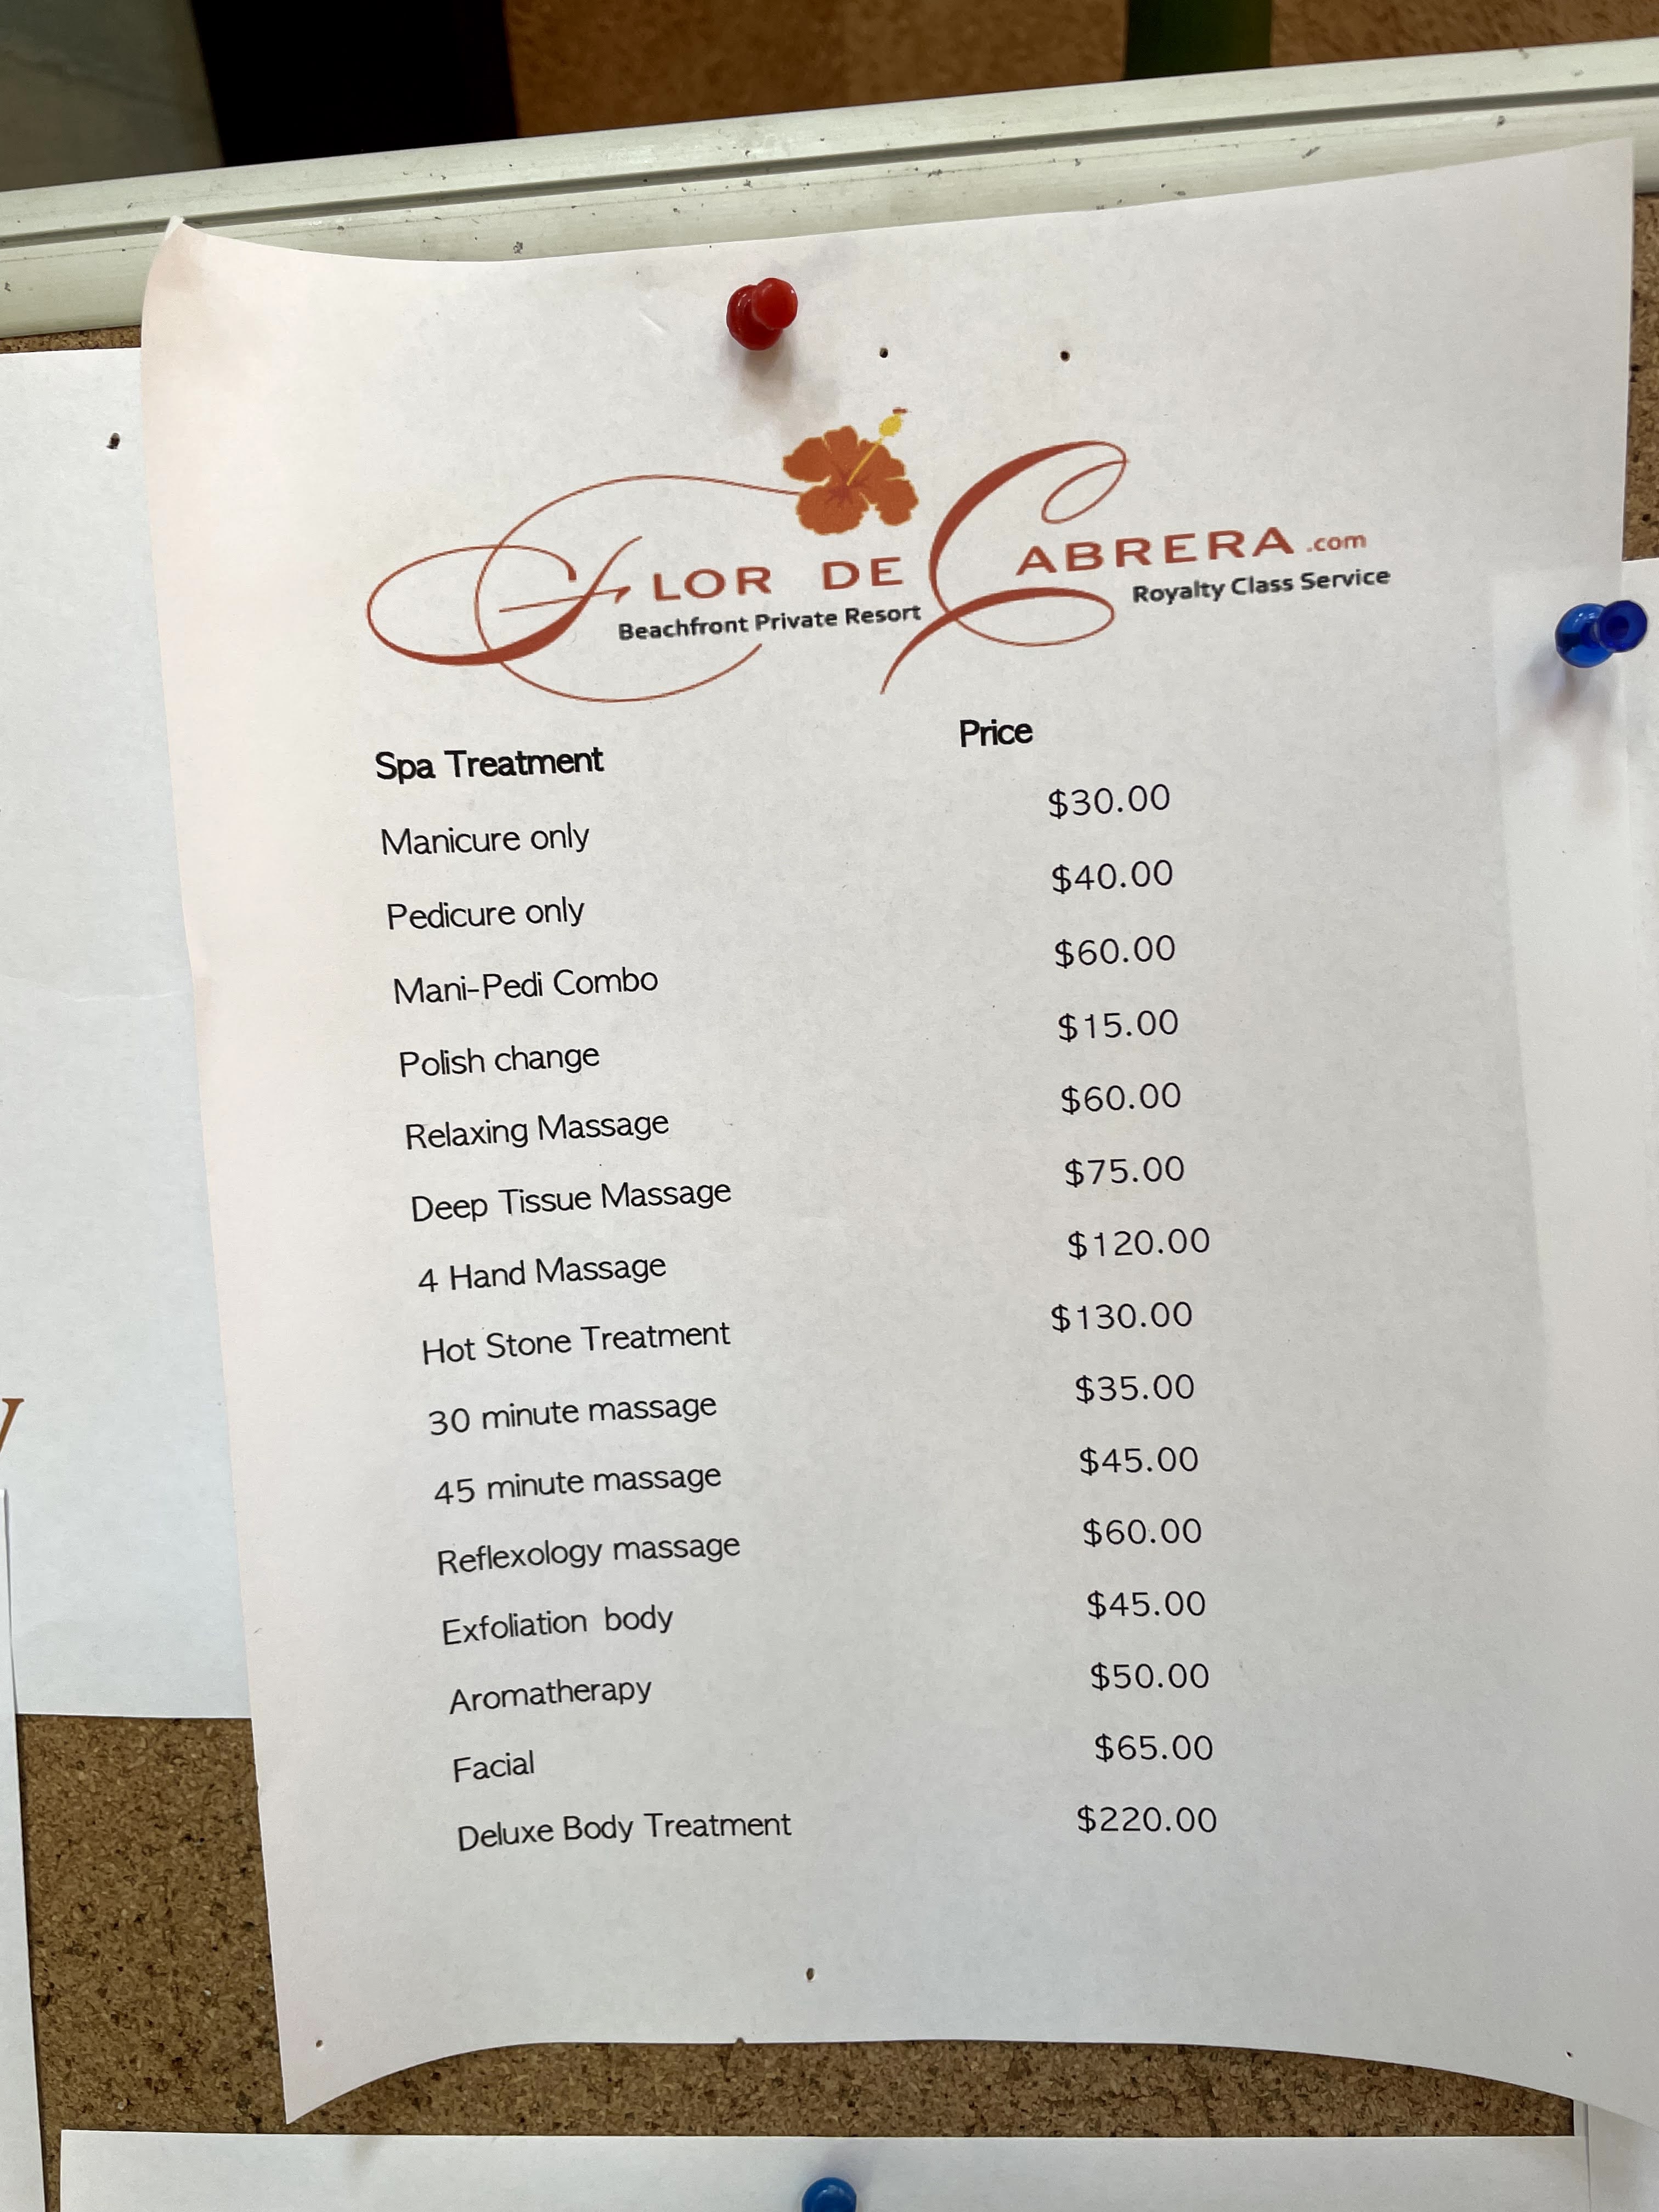 FLOR DE CABRERA.com
Beachfront Private Resort Royalty Class Service
Spa Treatment Price
Manicure only $30.00
Pedicure only $40.00
Mani-Pedi Combo $60.00
Polish change $15.00
Relaxing Massage $60.00
Deep Tissue Massage $75.00
4 Hand Massage $120.00
Hot Stone Treatment $130.00
30 minute massage $35.00
45 minute massage $45.00
Reflexology massage $60.00
Exfoliation body $45.00
Aromatherapy $50.00
Facial $65.00
Deluxe Body Treatment $220.00